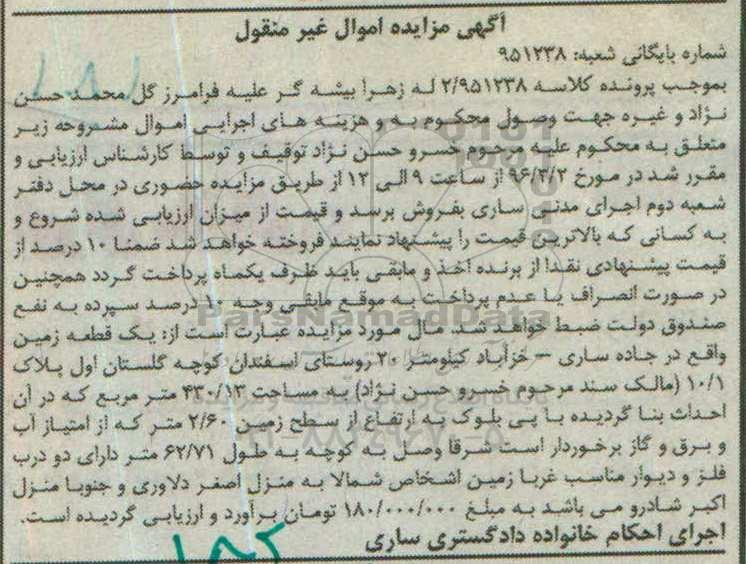 آگهی مزایده اموال غیر منقول
شماره بایگانی شعبه: ۹۵۱۲۳۸
بموجب پرونده کلاسه ۲/۹۵۱۲۳۸ له زهرا بیشه گر علیه فرامرز گل محمد حسن
نژاد و غیره جهت وصول محکوم به و هزینه های اجرایی اموال مشروحه زیر
متعلق به محکوم علیه مرحوم خسرو حسن نژاد توقیف و توسط کارشناس ارزیابی و
مقرر شد در مورخ ۹۶/۳/۲ از ساعت ۹ الی ۱۲ از طریق مزایده حضوری در محل دفتر
شعبه دوم اجرای مدنی ساری بفروش برسد و قیمت از میزان ارزیابی شده شروع و
به کسانی که بالاترین قیمت را پیشنهاد نمایند فروخته خواهد شد ضمنا ۱۰ درصد از
قیمت پیشنهادی نقدا از برنده اخذ و مابقی باید ظرف یکماه پرداخت گردد همچنین
در صورت انصراف یا عدم پرداخت به موقع مابقی وجه ۱۰ درصد سپرده به نفع
صندوق دولت ضبط خواهد شد. مال مورد مزایده عبارت است از: یک قطعه زمین
واقع در جاده ساری – خزآباد کیلومتر ۲۰ روستای اسفندان کوچه گلستان اول پلاک
۱۰/۱ (مالک سند مرحوم خسرو حسن نژاد) به مساحت ۴۳۰/۱۳ متر مربع که در آن
احداث بنا گردیده با پی بلوک به ارتفاع از سطح زمین ۲/۶۰ متر که از امتیاز آب
و برق و گاز برخوردار است شرقا وصل به کوچه به طول ۶۲/۷۱ متر دارای دو درب
فلز و دیوار مناسب غربا زمین اشخاص شمالا به منزل اصغر دلاوری و جنوبا منزل
اکبر شادرو می باشد به مبلغ ۱۸۰/۰۰۰/۰۰۰ تومان برآورد و ارزیابی گردیده است.
اجرای احکام خانواده دادگستری ساری
ParsNamadData